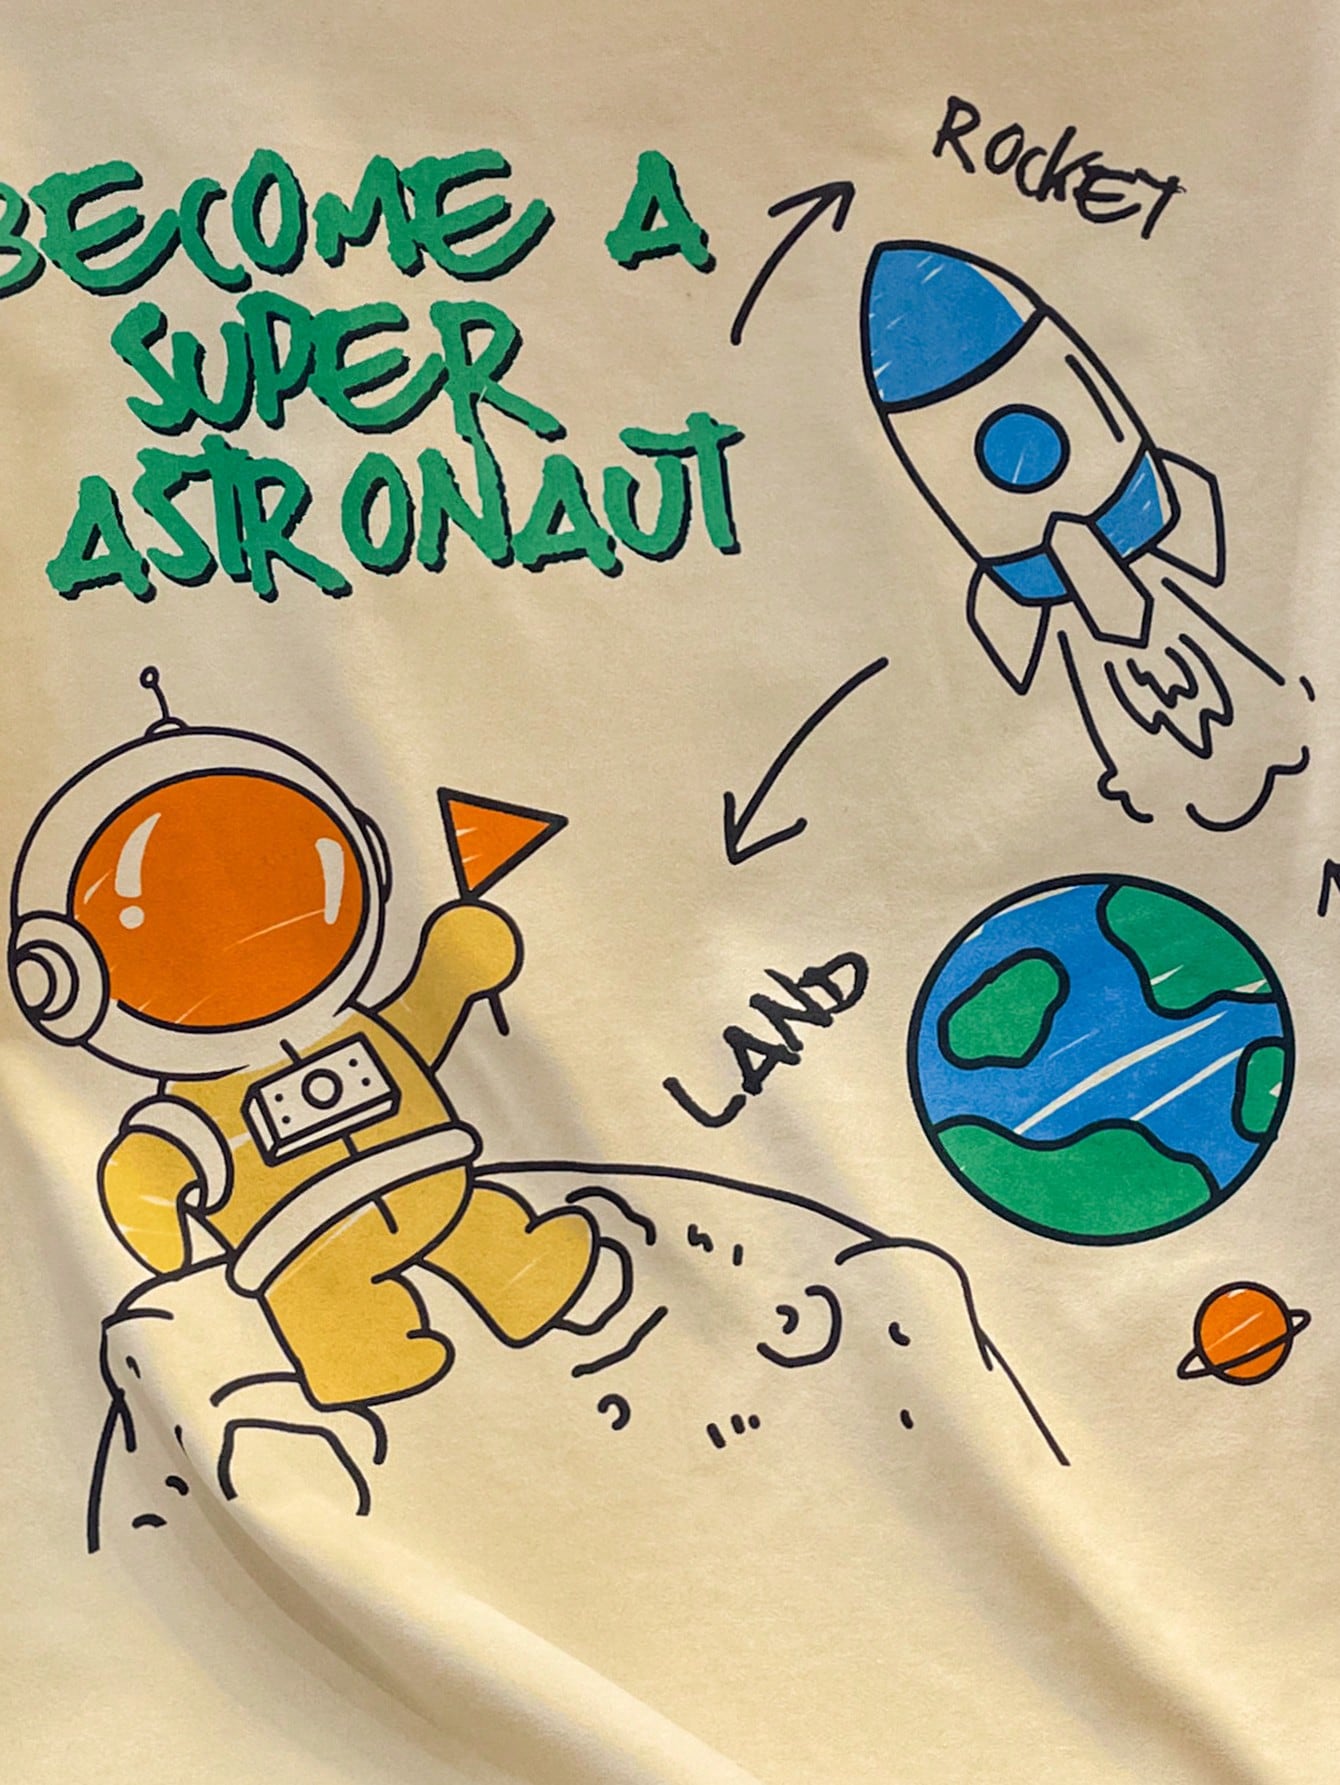 BECOME A
SUPER
ASTRONAUT
ROCKET
LAND